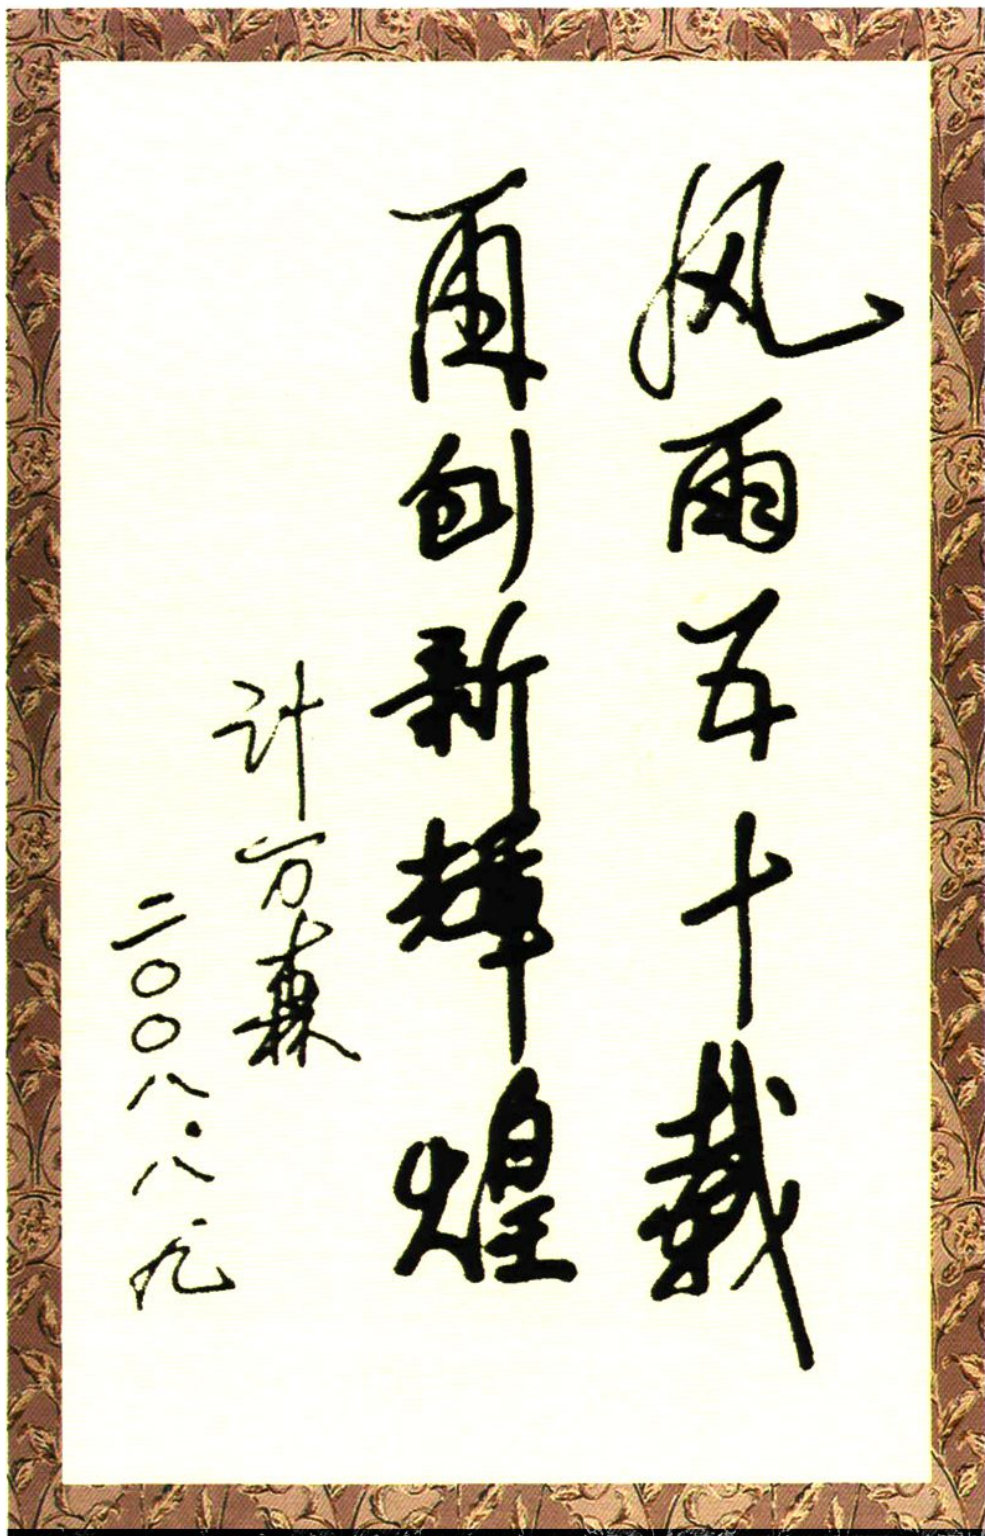 风雨五十载
再创新辉煌
计万森
二〇〇八.八.九